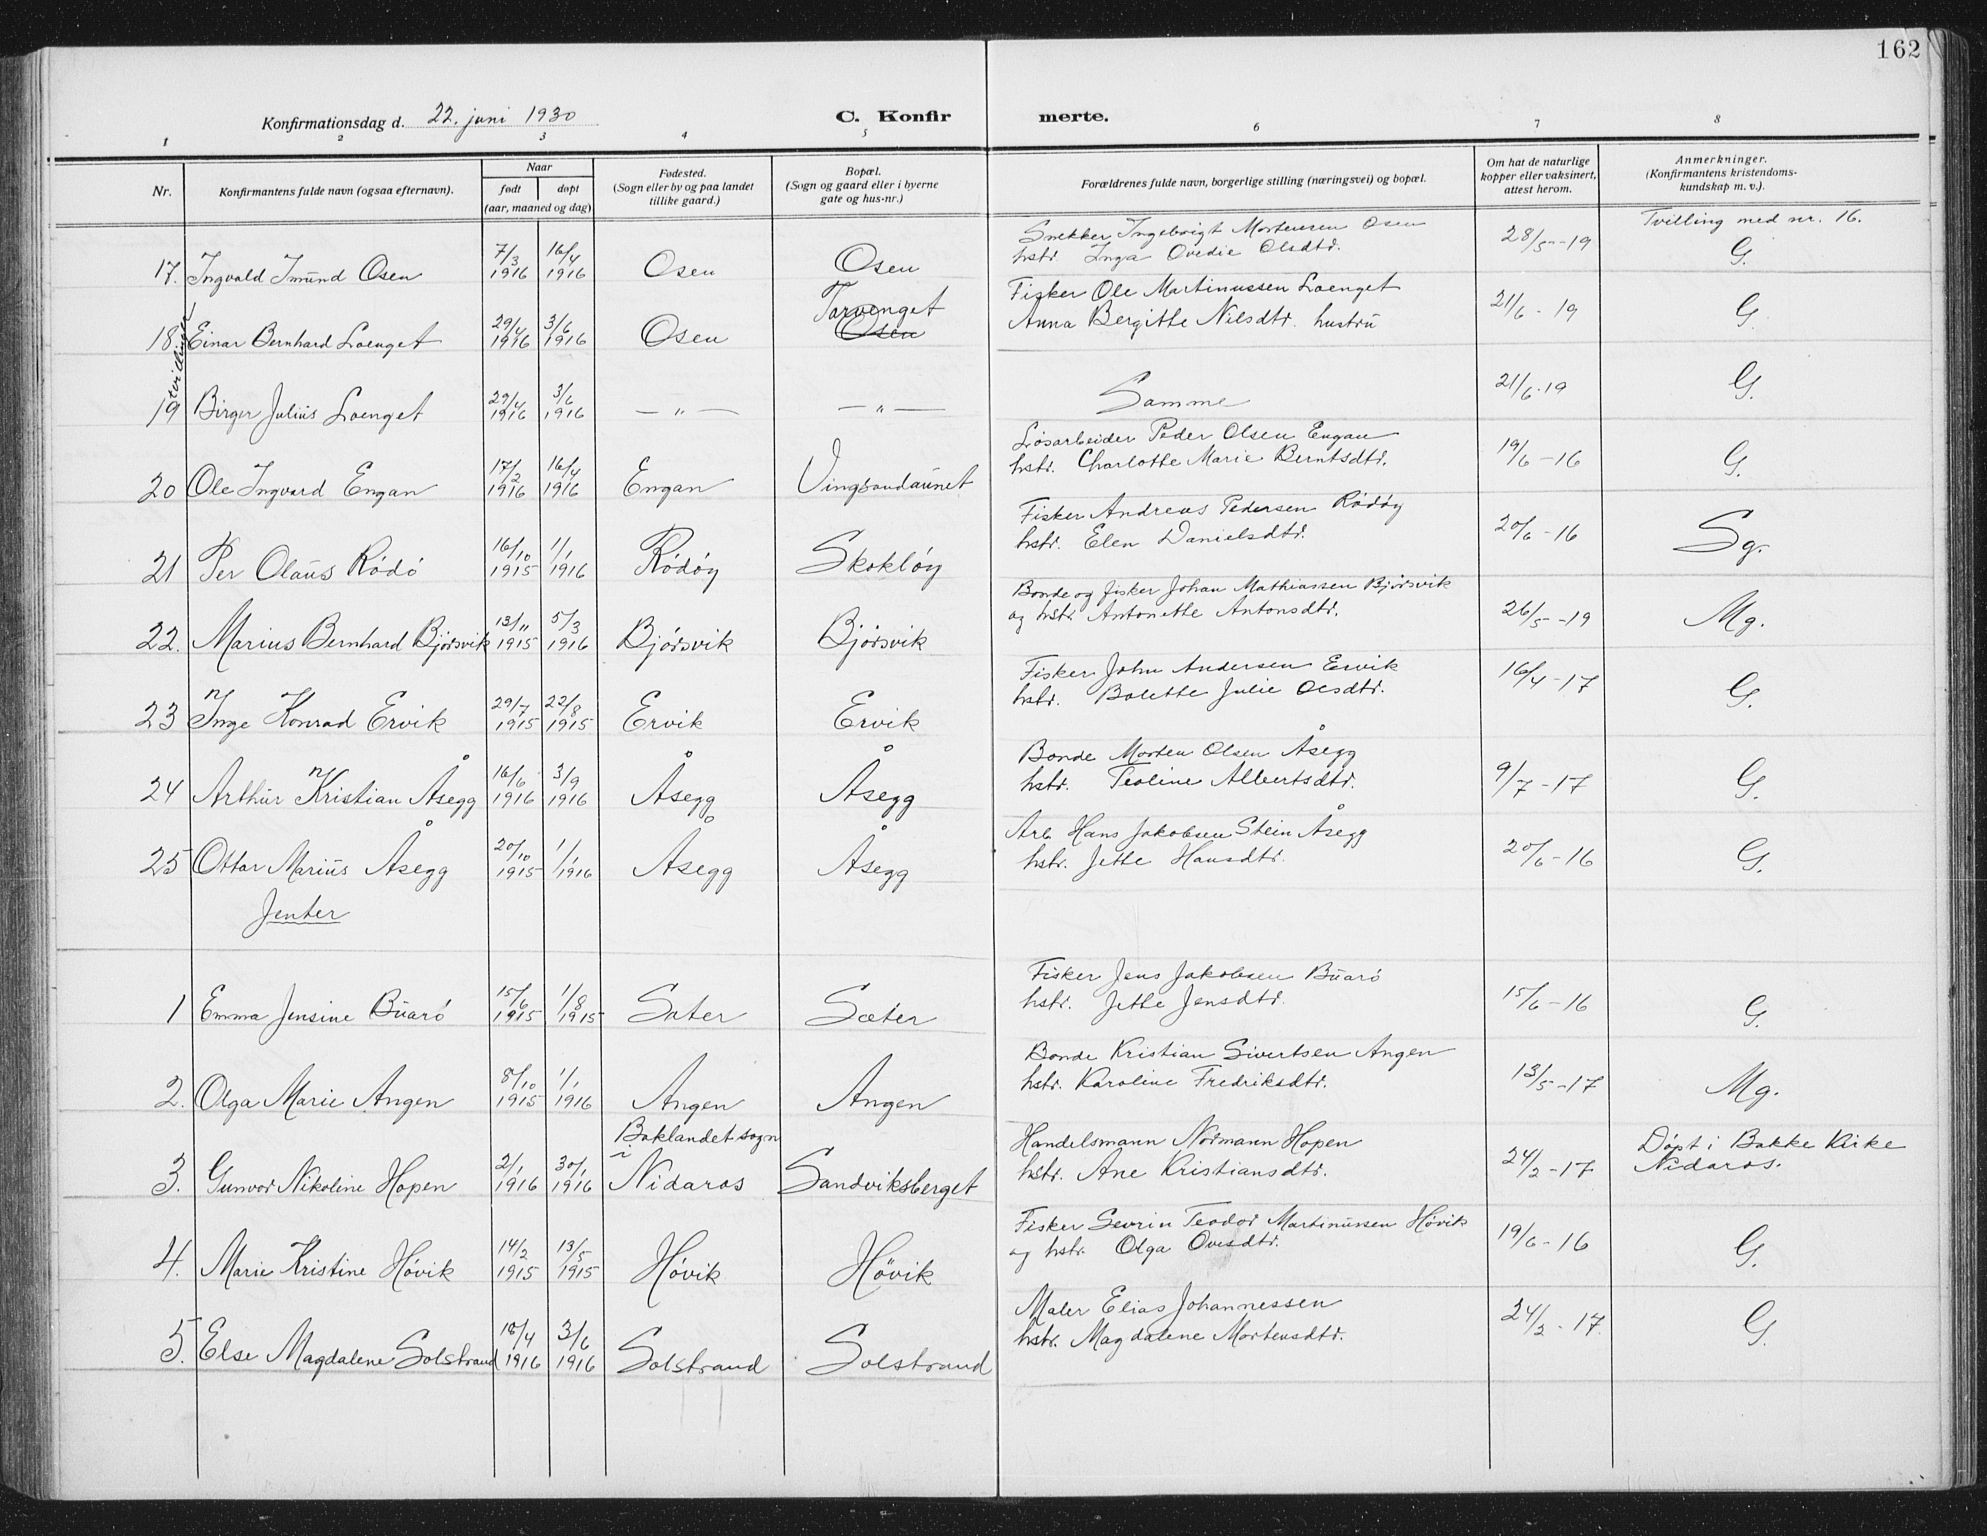 162
Konfirmationsdag d. 22. juni 1930
C. Konfirmerte.
1 2 3 4 5 6 7 8
Nr.
Konfirmantens fulde navn (ogsaa efternavn).
Naar
født
døpt
(aar, maaned og dag)
Fødested.
(Sogn eller by og paa landet
tillike gaard.)
Bopæl.
(Sogn og gaard eller i byerne
gate og hus-nr.)
Forældrenes fulde navn, borgerlige stilling (næringsvei) og bopæl.
Om hat de naturlige
kopper eller vaksinert,
attest herom.
Anmerkninger.
(Konfirmantens kristendoms-
kundskap m. v.).
Snekker Ingebrigt Mortensen Osen
hstr. Inga Ovedie Olsdtr.
28/5-19
Tvilling med nr. 16.
17. Ingvald Imund Osen 7/3 1916 16/4 1916 Osen Osen G.
Fisker Ole Martinussen Loenget
Anna Bergitte Nilsdtr. hustru
Tarvenget
18. Einar Bernhard Loenget 29/4 1916 3/6 1916 Osen Osen 21/6 - 19 G.
tvillinger
19 Birger Julius Loenget 29/4 1916 3/6 1916 — " — — " — Samme 21/6-19 G.
Løsarbeider Peder Olsen Engan
hstr. Charlotte Marie Berntsdtr.
20 Ole Ingvard Engan 17/2 1916 16/4 1916 Engan Vingsandaunet 19/6 - 16 G.
Fisker Andreas Pedersen Rødøy
hstr. Elen Danielsdtr.
21 Per Olaus Rødø 16/10 1915 1/1 1916 Rødøy Skokløy 20/6 - 16 Sg.
Bonde og fisker Johan Mathiassen Bjørsvik
og hstr. Antonette Antonsdtr.
22. Marius Bernhard Bjørsvik 13/11 1915 5/3 1916 Bjørsvik Bjørsvik 26/5 -19 Mg.
Fisker John Andersen Ervik
hstr. Bolette Julie Olsdtr.
23 Inge Konrad Ervik 29/7 1915 22/8 1915 Ervik Ervik 16/4-17 G.
Bonde Morten Olsen Åsegg
hstr. Teoline Albertsdtr.
24 Arthur Kristian Åsegg 16/6 1916 3/9 1916 Åsegg Åsegg 9/7 - 17 G.
Arb Hans Jakobsen Stein Åsegg
hstr. Jette Hansdtr.
25 Ottar Marius Åsegg 20/10 1915 1/1 1916 Åsegg Åsegg 20/6-16 G.
Jenter
Fisker Jens Jakobsen Buarø
hstr. Jette Jensdtr.
1 Emma Jensine Buarø 15/6 1915 1/8 1915 Sæter Sæter 15/6 - 16 G.
Bonde Kristian Sivertsen Angen
hstr. Karoline Fredriksdtr.
2. Olga Marie Angen 8/10 1915 1/1 1916 Angen Angen 13/5-17 Mg.
Baklandet sogn
i
Handelsmann Normann Hopen
hstr. Ane Kristiansdtr.
Døpt i Bakke Kirke
Nidaros.
3. Gunvor Nikoline Hopen 2/1 1916 30/1 1916 Nidaros Sandviksberget 24/2-17
Fisker Sevrin Teodor Martinussen Høvik
og hstr. Olga Ovesdtr.
4. Marie Kristine Høvik 14/2 1915 13/5 1915 Høvik Høvik 19/6 - 16 G.
Maler Elias Johannessen
hstr. Magdalene Mortensdtr.
5. Else Magdalene Solstrand 18/4 1916 3/6 1916 Solstrand Solstrand 24/2 - 17. G.